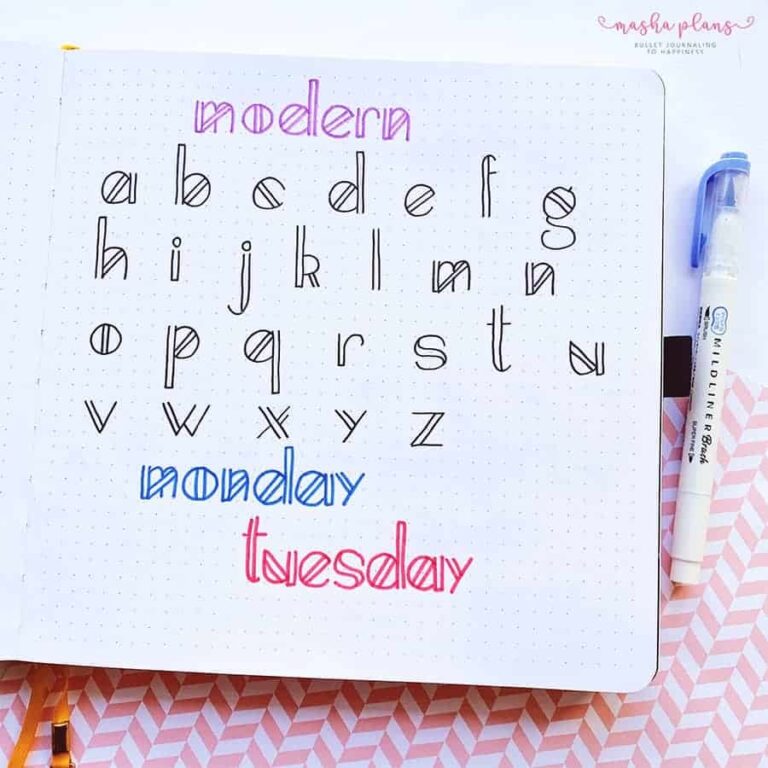 masha plans
BULLET JOURNALING
TO HAPPINESS
modern
a b c d e f g
h i j k l m n
o p q r s t u
v w x y z
monday
tuesday
MILDLINER Brush
SUPER FINE
BRUSH